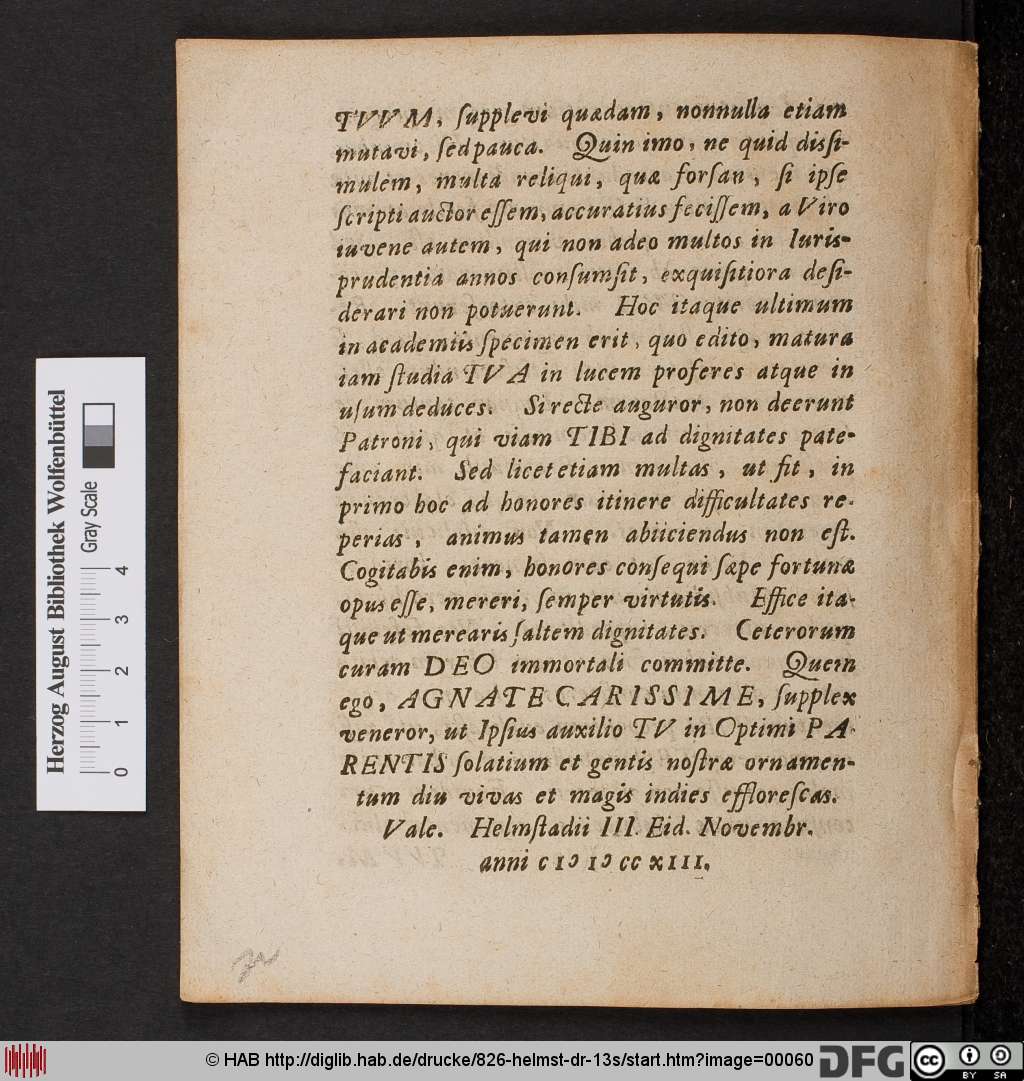 TVVM, ſupplevi quædam, nonnulla etiam
mutavi, ſed pauca. Quin imo, ne quid disſi-
mulem, multa reliqui, quæ forſan, ſi ipſe
ſcripti auctor eſſem, accuratius feciſſem, a Viro
iuvene autem, qui non adeo multos in Iuris-
prudentia annos conſumſit, exquiſitiora deſi-
derari non potuerunt. Hoc itaque ultimum
in academiis ſpecimen erit, quo edito, matura
iam ſtudia TVA in lucem proferes atque in
uſum deduces. Si recte auguror, non deerunt
Patroni, qui viam TIBI ad dignitates pate-
faciant. Sed licet etiam multas, ut fit, in
primo hoc ad honores itinere difficultates re-
perias, animus tamen abiiciendus non eſt.
Cogitabis enim, honores conſequi ſæpe fortunæ
opus eſſe, mereri, ſemper virtutis. Effice ita-
que ut merearis ſaltem dignitates. Ceterorum
curam DEO immortali committe. Quem
ego, AGNATE CARISSIME, ſupplex
veneror, ut Ipſius auxilio TV in Optimi PA-
RENTIS ſolatium et gentis noſtræ ornamen-
tum diu vivas et magis indies effloreſcas.
Vale. Helmſtadii III. Eid. Novembr.
anni CIↃ IↃ CC XIII.
Herzog August Bibliothek Wolfenbüttel
Gray Scale
0 1 2 3 4
© HAB http://diglib.hab.de/drucke/826-helmst-dr-13s/start.htm?image=00060
DFG
cc BY SA